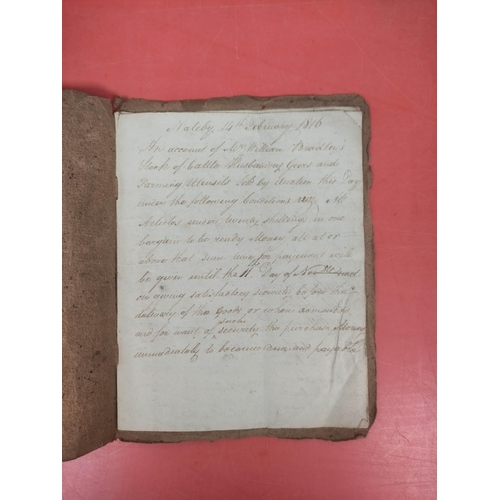 Nateby, 14th February 1816
An account of Mr William Bradley's
Stock of Cattle Husbandry Gears and
Farming Utensils Sold by Auction this Day
under the following Conditions viz. All
Articles under twenty shillings in one
bargain to be ready Money all at or
above that sum time for payment will
be given until the 11th Day of Novr next
on giving satisfactory security before the
delivery of the Goods or when demanded
and for want of such security the purchase Money
immediately to become due and payable